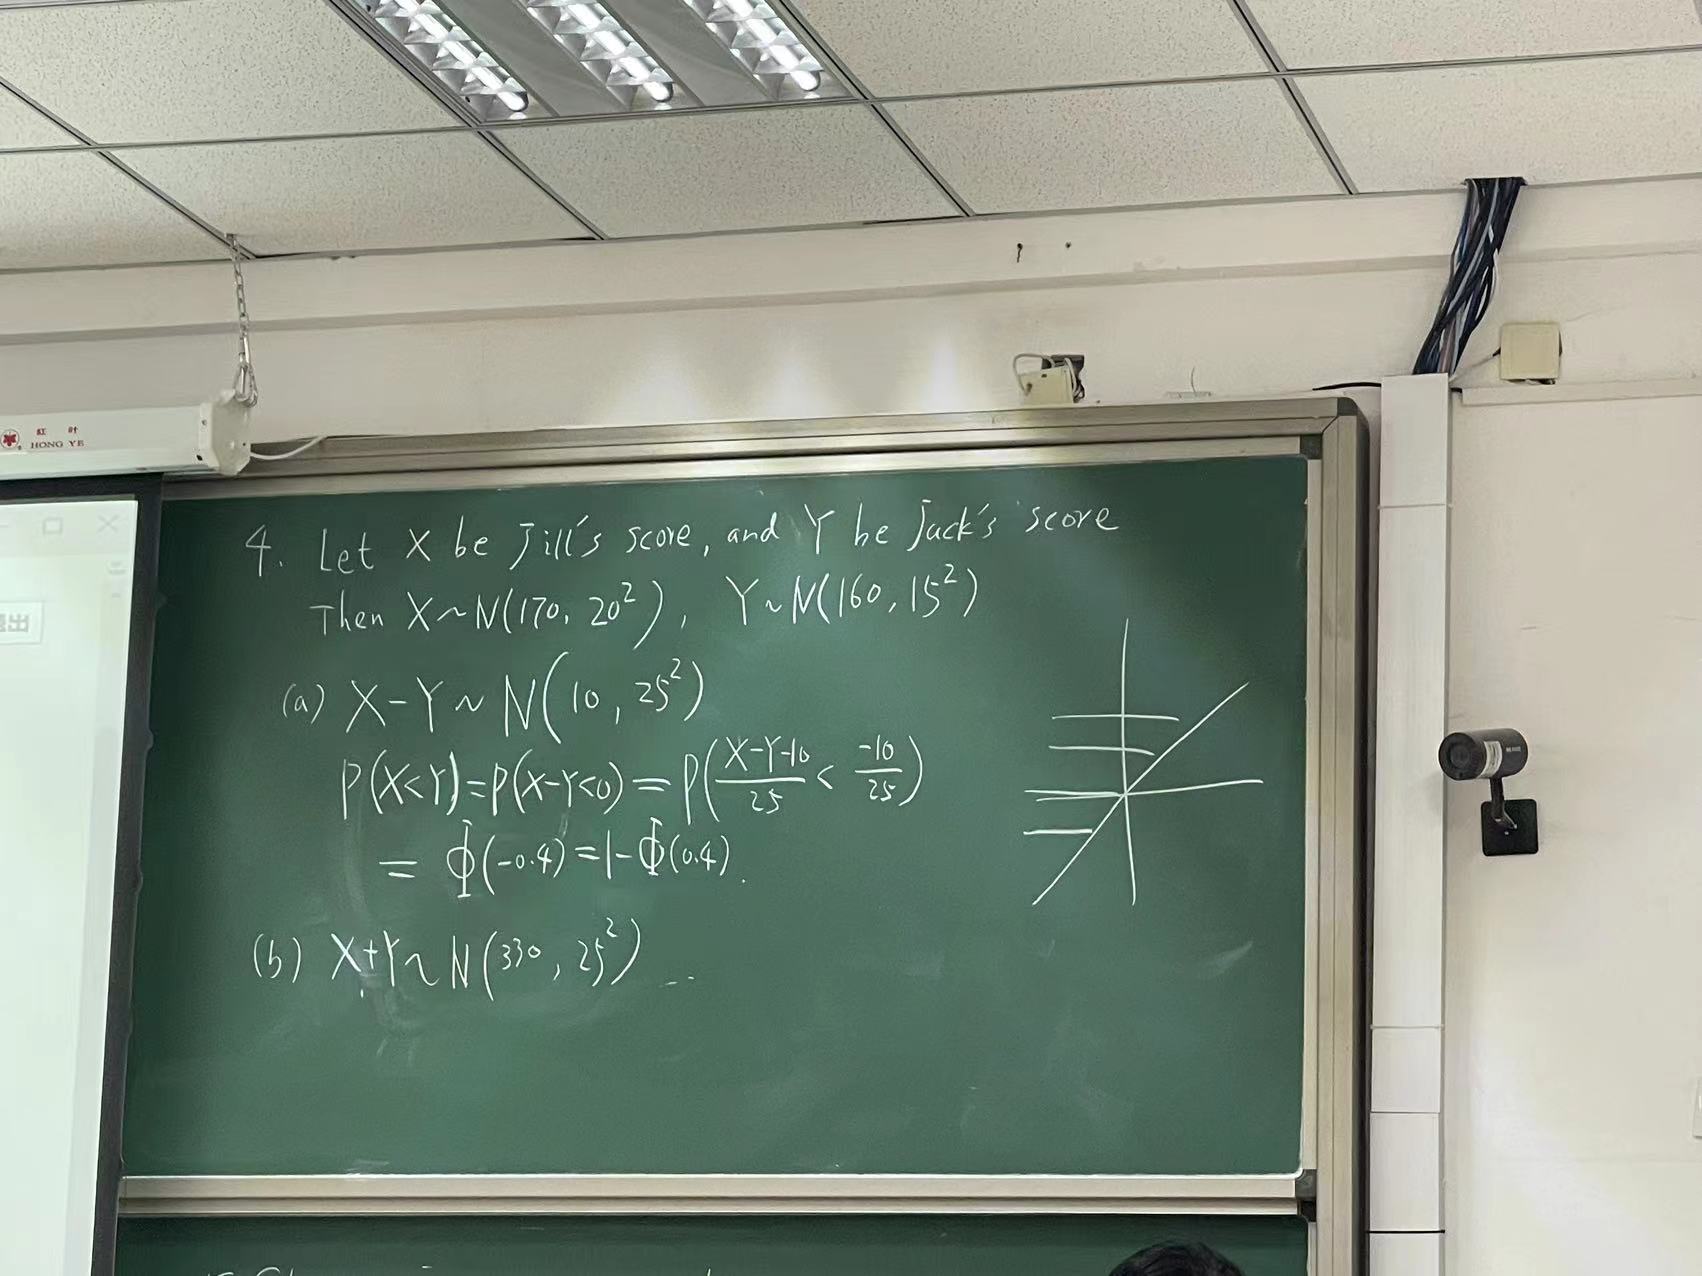 紅叶
HONG YE
出
4. Let X be Jill's score, and Y be Jack's score
Then X~N(170, 20²), Y~N(160, 15²)
(a) X-Y ~ N(10, 25²)
P(X<Y)=P(X-Y<0)=P(\frac{X-Y-10}{25} < \frac{-10}{25})
= Φ(-0.4)=1-Φ(0.4).
(b) X+Y~N(330, 25²) ...